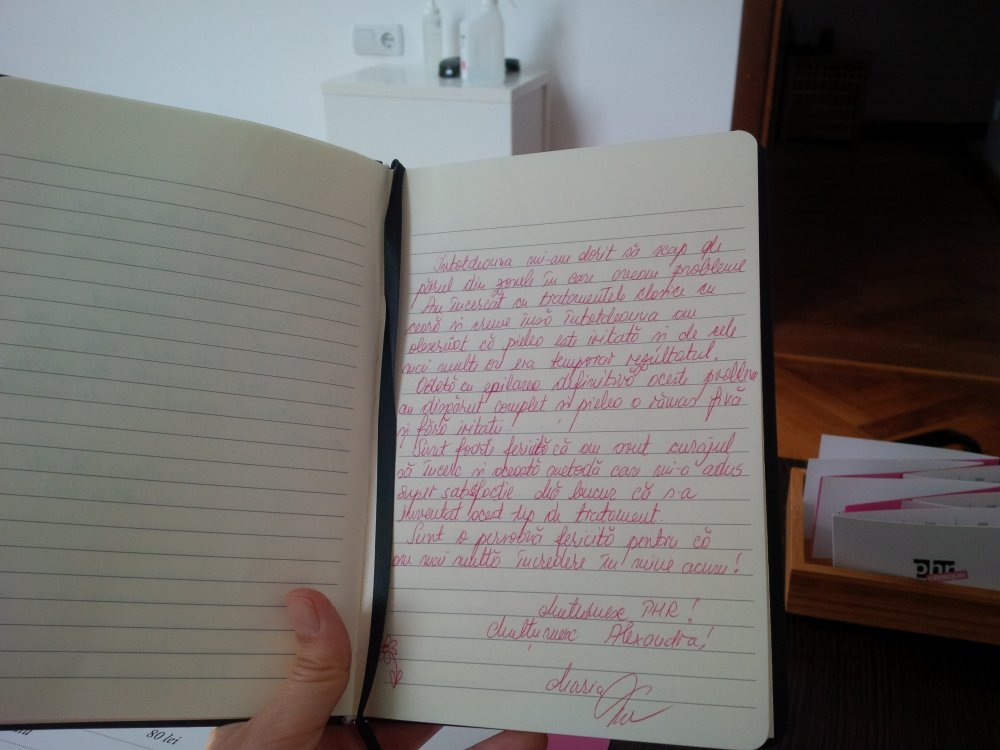 Întotdeauna mi-am dorit să scap de
părul din zonele în care aveam probleme
Am încercat cu tratamentele clasice cu
ceară și creme însă întotdeauna am
observat că pielea este iritată și de cele
mai multe ori era temporar rezultatul.
Odată cu epilarea definitivă aceste probleme
au dispărut complet și pielea a rămas fină
și fără iritații!
Sunt foarte fericită că am avut curajul
să încerc și această metodă care mi-a adus
super satisfacție. Mă bucur că s-a
inventat acest tip de tratament.
Sunt o persoană fericită pentru că
am mai multă încredere în mine acum!
Mulțumesc PHR!
Mulțumesc Alexandra!
Maria
phr
80 lei